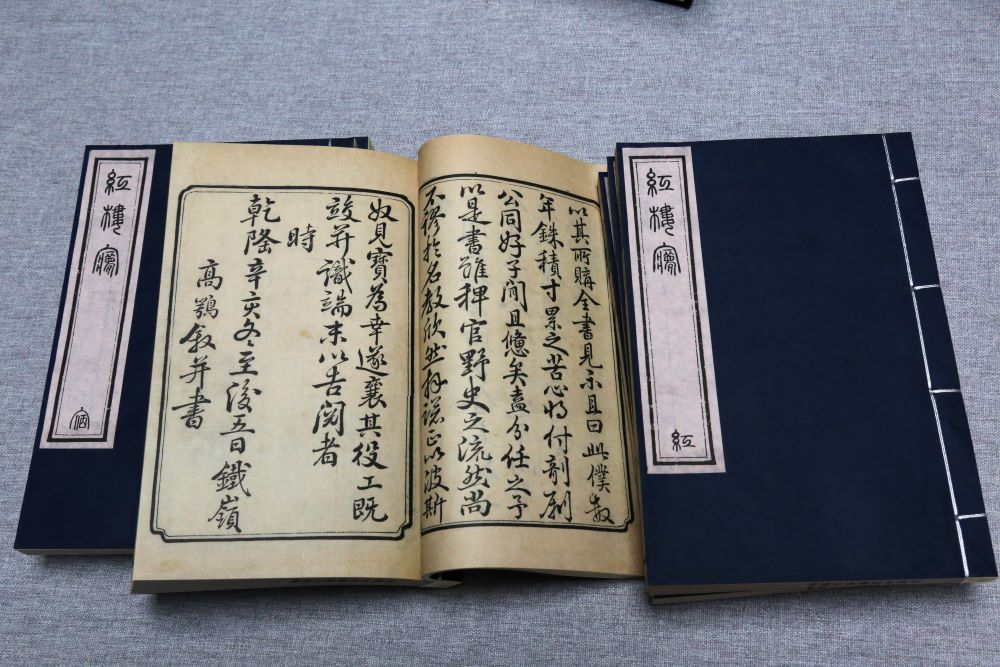 紅樓夢
紅
以其所購全書見示且曰此僕數
年銖積寸累之苦心將付剞劂
公同好子閒且憊矣盍分任之予
以是書雖稗官野史之流然尚
不謬於名教欣然拜諾正以波斯
奴見寶為幸遂襄其役工既
竣并識端末以告閱者
時
乾隆辛亥冬至後五日鐵嶺
高鶚敘并書
紅樓夢